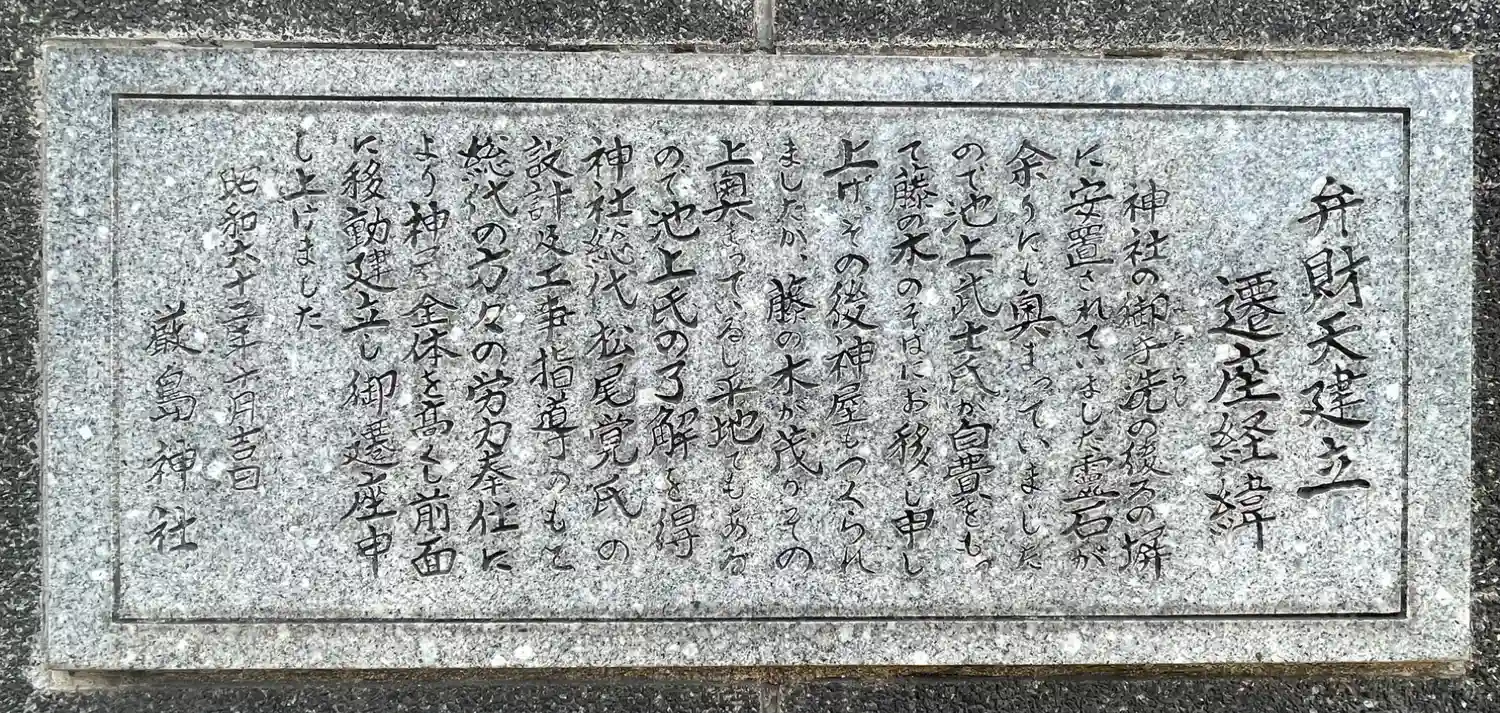 弁財天建立
遷座経緯
神社の御手洗の後ろの塀
みたらし
に安置されていました霊石が
余りにも奥まっていました
ので池上武士氏が自費をもっ
て藤の木のそばにお移し申し
上げその後神屋もつくられ
ましたが、藤の木が茂りその
上奥まっているし平地でもある
ので池上氏の了解を得
神社総代松尾覚氏の
設計及工事指導のもと
総代の方々の労力奉仕に
より神 全体を高くし前面
に移動建立し御遷座申
し上げました
昭和六十 年十月吉日
厳島神社